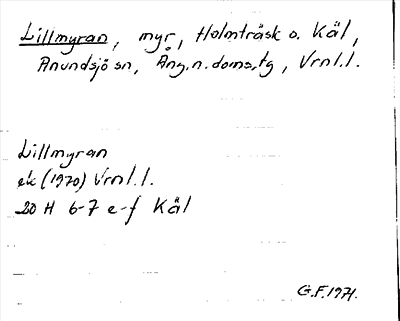 Lillmyran, myr, Holmträsk o. Käl,
Anundsjö sn, Ång. n. doms.tg, Vrnl.l.
Lillmyran
ek (1970) Vrnl.l.
20 H 6-7 e-f Käl
G.F. 1971.